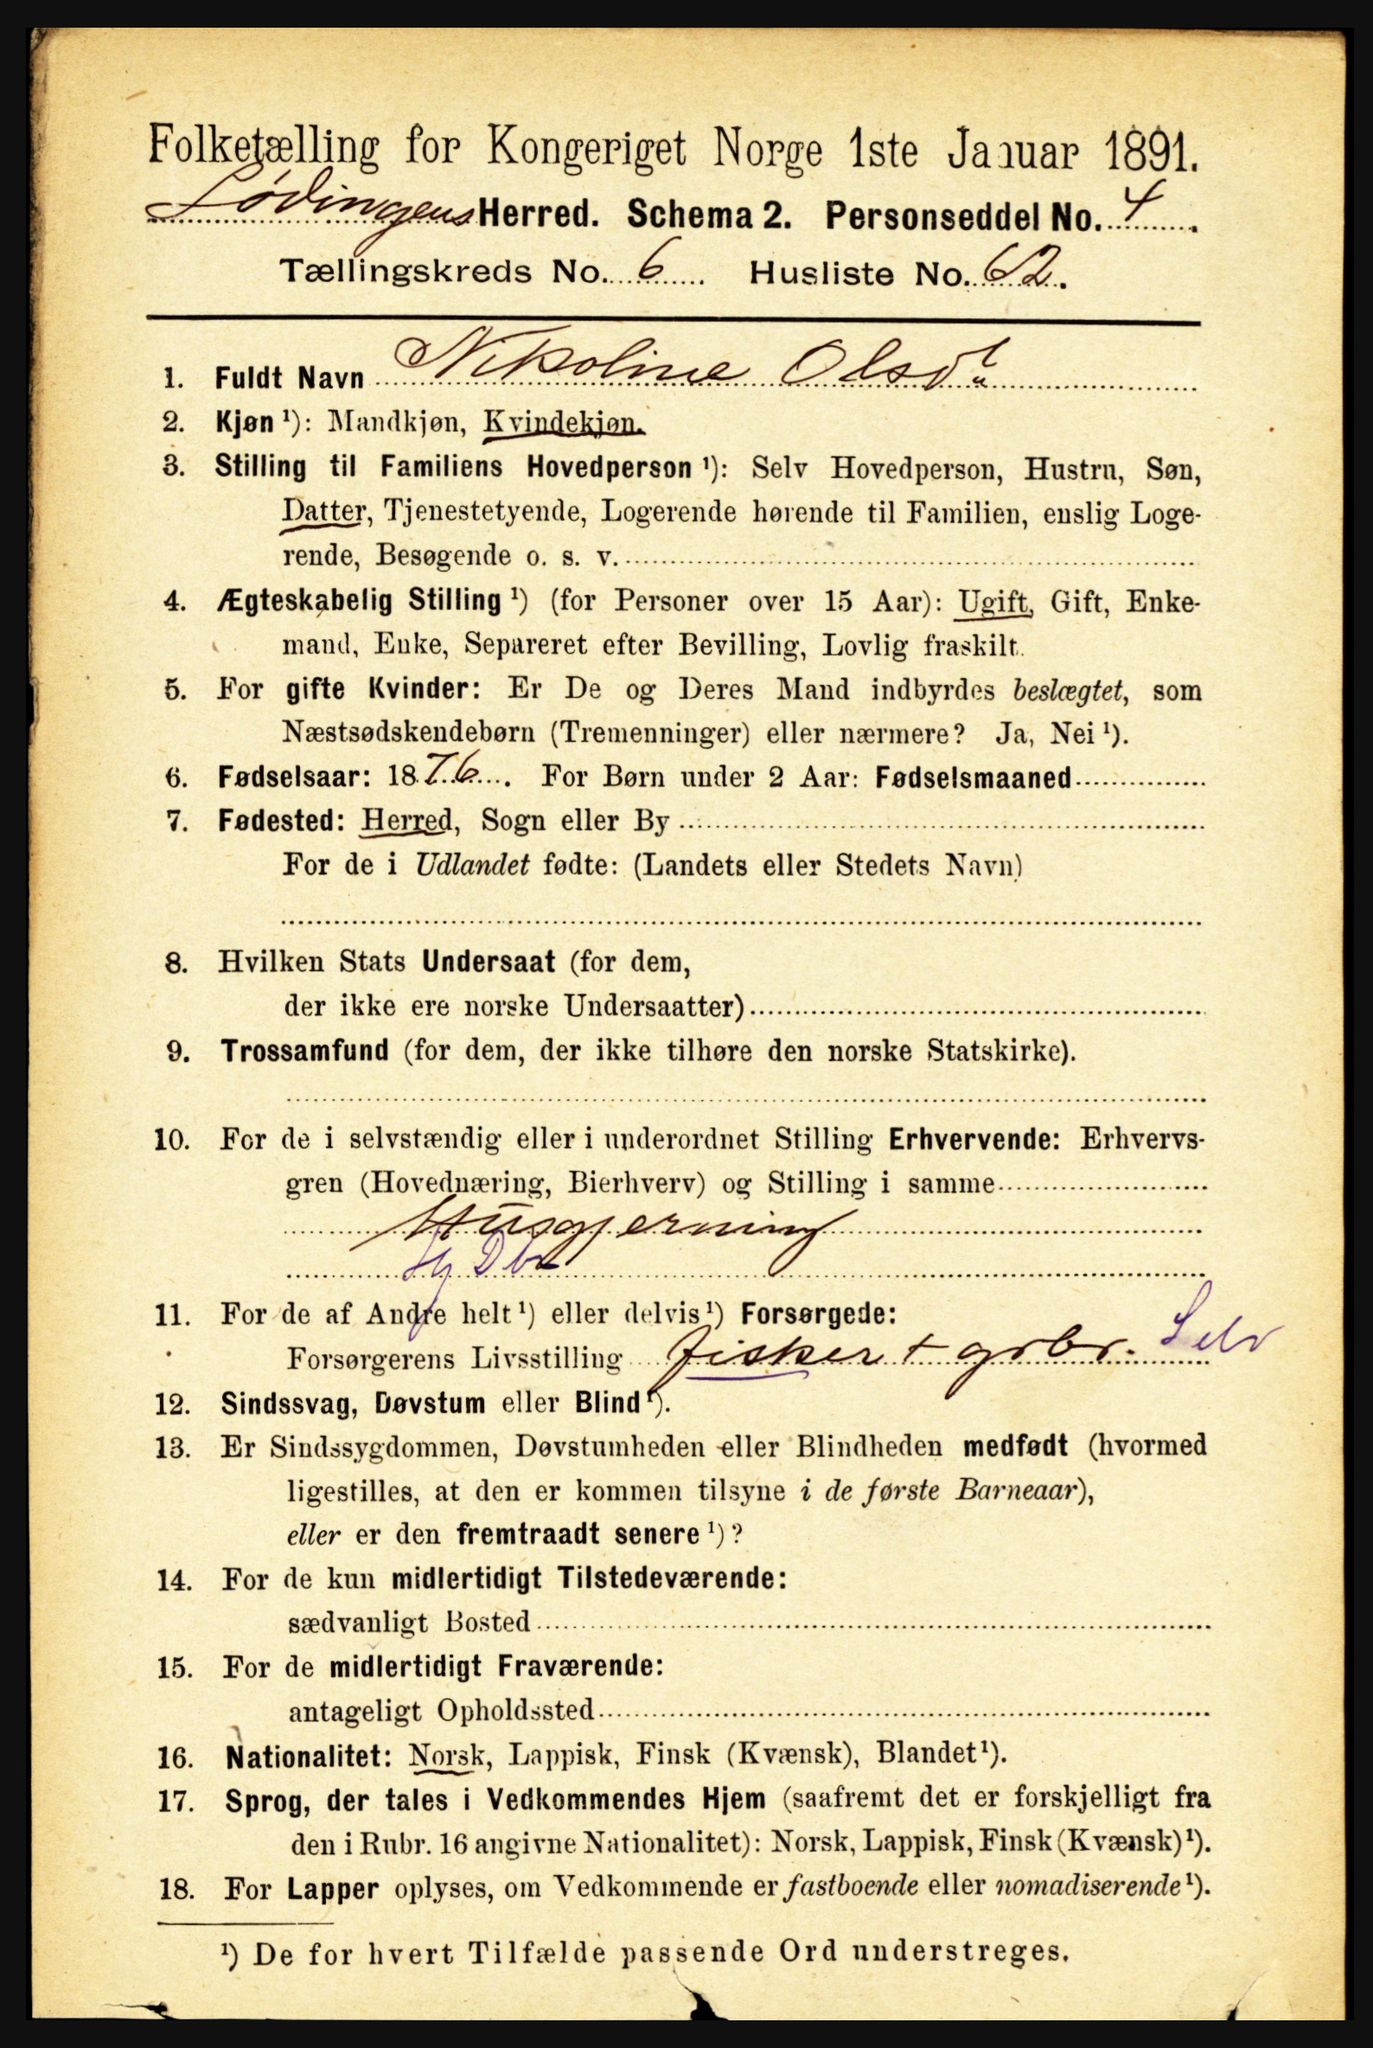 Folketælling for Kongeriget Norge 1ste Januar 1891.
Lødingens Herred. Schema 2. Personseddel No. 4.
Tællingskreds No. 6. Husliste No. 62.
1. Fuldt Navn Nikoline Olsdr
2. Kjøn ¹): Mandkjøn, Kvindekjøn.
3. Stilling til Familiens Hovedperson ¹): Selv Hovedperson, Hustru, Søn,
Datter, Tjenestetyende, Logerende hørende til Familien, enslig Loge-
rende, Besøgende o. s. v.
4. Ægteskabelig Stilling ¹) (for Personer over 15 Aar): Ugift, Gift, Enke-
mand, Enke, Separeret efter Bevilling, Lovlig fraskilt.
5. For gifte Kvinder: Er De og Deres Mand indbyrdes beslægtet, som
Næstsødskendebørn (Tremenninger) eller nærmere? Ja, Nei ¹).
6. Fødselsaar: 1876. For Børn under 2 Aar: Fødselsmaaned
7. Fødested: Herred, Sogn eller By
For de i Udlandet fødte: (Landets eller Stedets Navn)
8. Hvilken Stats Undersaat (for dem,
der ikke ere norske Undersaatter)
9. Trossamfund (for dem, der ikke tilhøre den norske Statskirke).
10. For de i selvstændig eller i underordnet Stilling Erhvervende: Erhvervs-
gren (Hovednæring, Bierhverv) og Stilling i samme
Husgjerning
Hj Dbr
11. For de af Andre helt ¹) eller delvis ¹) Forsørgede:
Forsørgerens Livsstilling fisker + grbr. Selv
12. Sindssvag, Døvstum eller Blind ¹).
13. Er Sindssygdommen, Døvstumheden eller Blindheden medfødt (hvormed
ligestilles, at den er kommen tilsyne i de første Barneaar),
eller er den fremtraadt senere ¹)?
14. For de kun midlertidigt Tilstedeværende:
sædvanligt Bosted
15. For de midlertidigt Fraværende:
antageligt Opholdssted
16. Nationalitet: Norsk, Lappisk, Finsk (Kvænsk), Blandet ¹).
17. Sprog, der tales i Vedkommendes Hjem (saafremt det er forskjelligt fra
den i Rubr. 16 angivne Nationalitet): Norsk, Lappisk, Finsk (Kvænsk) ¹).
18. For Lapper oplyses, om Vedkommende er fastboende eller nomadiserende ¹).
¹) De for hvert Tilfælde passende Ord understreges.